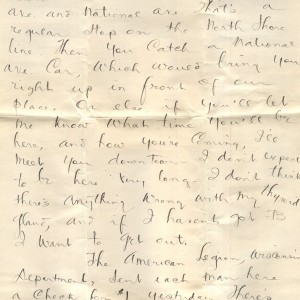 are, and National are That's a
regular stop on the North Shore
line. Then you catch a National
are car, which would bring you
right up in front of our
place. Or else if you'll let
me know what time you'll be
here, and how you're coming, I'll
meet you downtown. I don't expect
to be here very long. I don't think
there's anything wrong with my thyroid
gland, and if I haven't got TB
I want to get out.
The American Legion, Wisconsin
Department, sent each man here
a check for $1 yesterday. There's